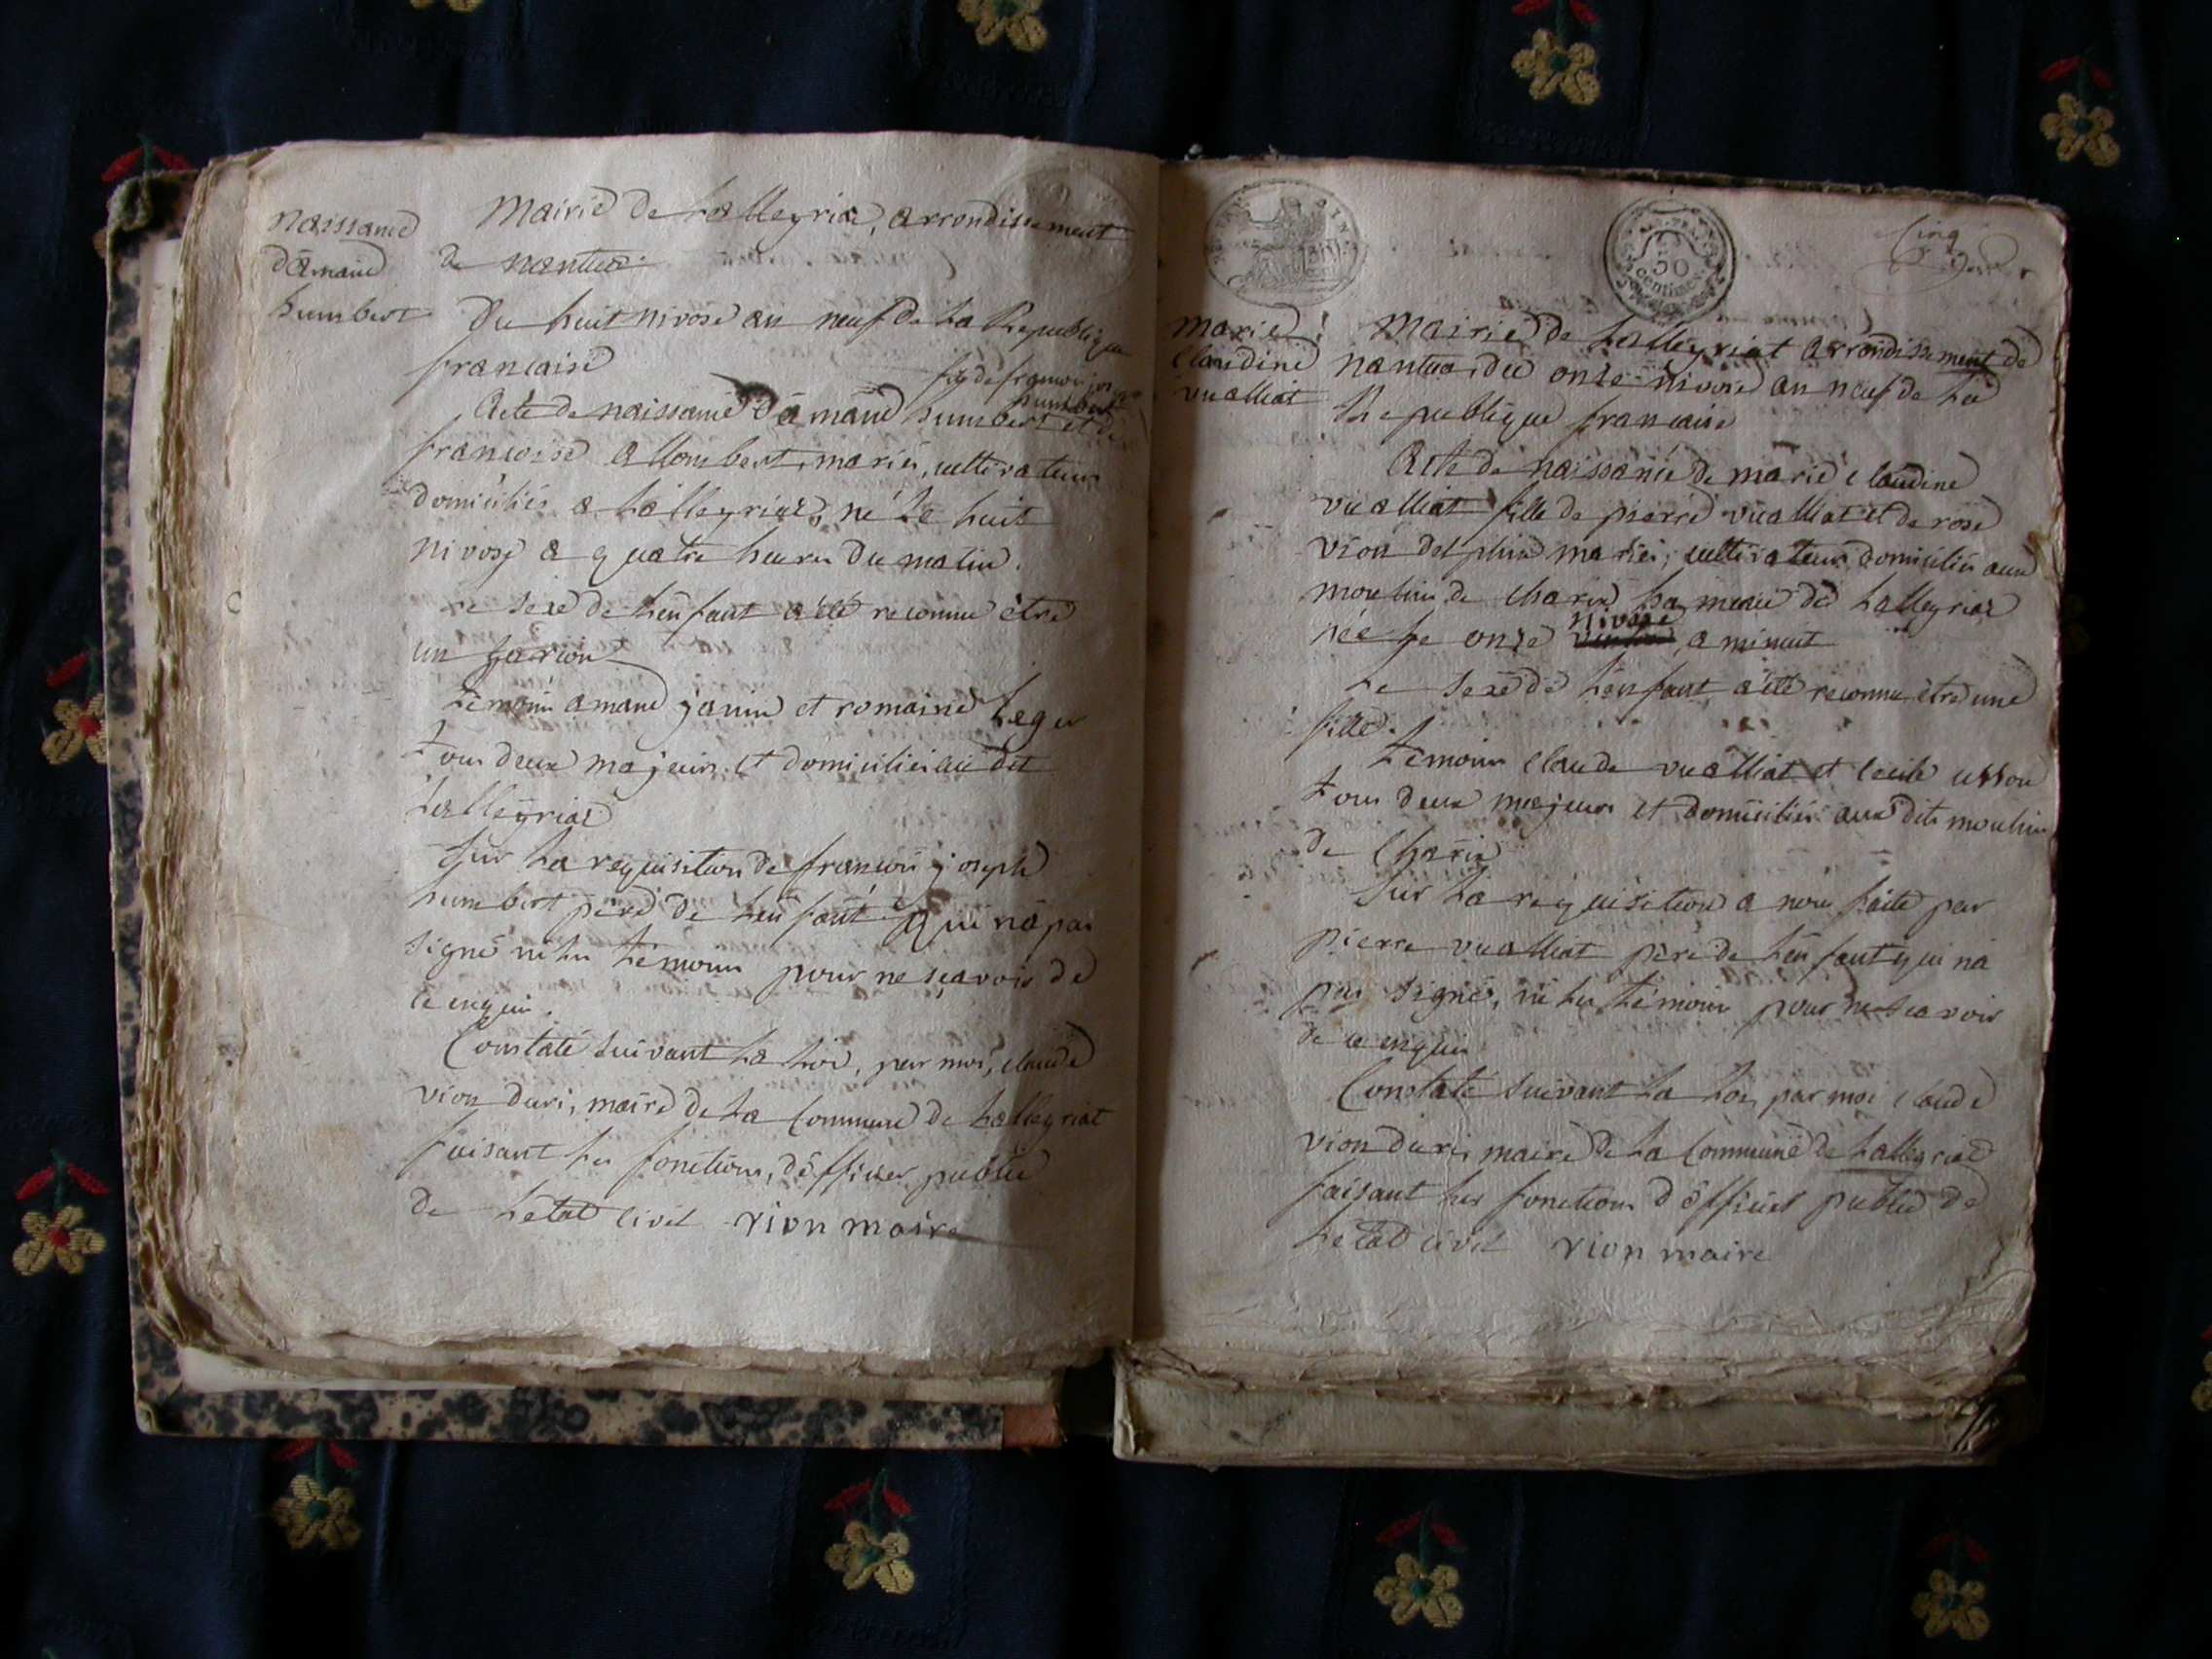 naissance
d'amand
humbert
Mairie de Lalleyriat, arrondissement
de nantua
Du huit nivose an neuf de la Republique
francaise
fils de francois jos
humbert
Acte de naissance d'amand humbert et de
francoise allombert, mariés, cultivateurs
domiciliés a Lalleyriat, né le huit
nivose a quatre heures du matin.
le sexe de l'enfant a été reconnu être
un garcon
témoins amand janin et romaine Leger
tous deux majeurs et domiciliés au dit
Lalleyriat
Sur la requisition de francois joseph
humbert père de l'enfant qui n'a pas
signé ni les témoins pour ne sçavoir de
ce enquis.
Constaté suivant la loi, par moi, claude
vion duri, maire de la Commune de Lalleyriat
faisant les fonctions, d'officier public
de l'etat civil vion maire
BAN FIN
50
Centimes
Cinq
marie
Claudine
vualliat
Mairie de Lalleyriat arrondissement de
nantua, du onze nivose an neuf de la
Republique francaise
Acte de naissance de marie claudine
vualliat fille de pierre vualliat et de rose
vion delphin mariés, cultivateurs, domiciliés aux
moulins de charix hameau de Lalleyriat
nivose
née le onze, a minuit
le sexe de l'enfant a été reconnu être une
fille.
témoins claude vualliat et Cecile
tous deux majeurs et domiciliés aux dits moulins
de Charix
Sur la requisition a nous faite par
pierre vualliat père de l'enfant qui n'a
pas signé, ni les témoins pour ne sçavoir
de ce enquis
Constaté suivant la loi, par moi claude
vion duri, maire de la Commune de Lalleyriat
faisant les fonctions d'officier public de
l'etat civil vion maire